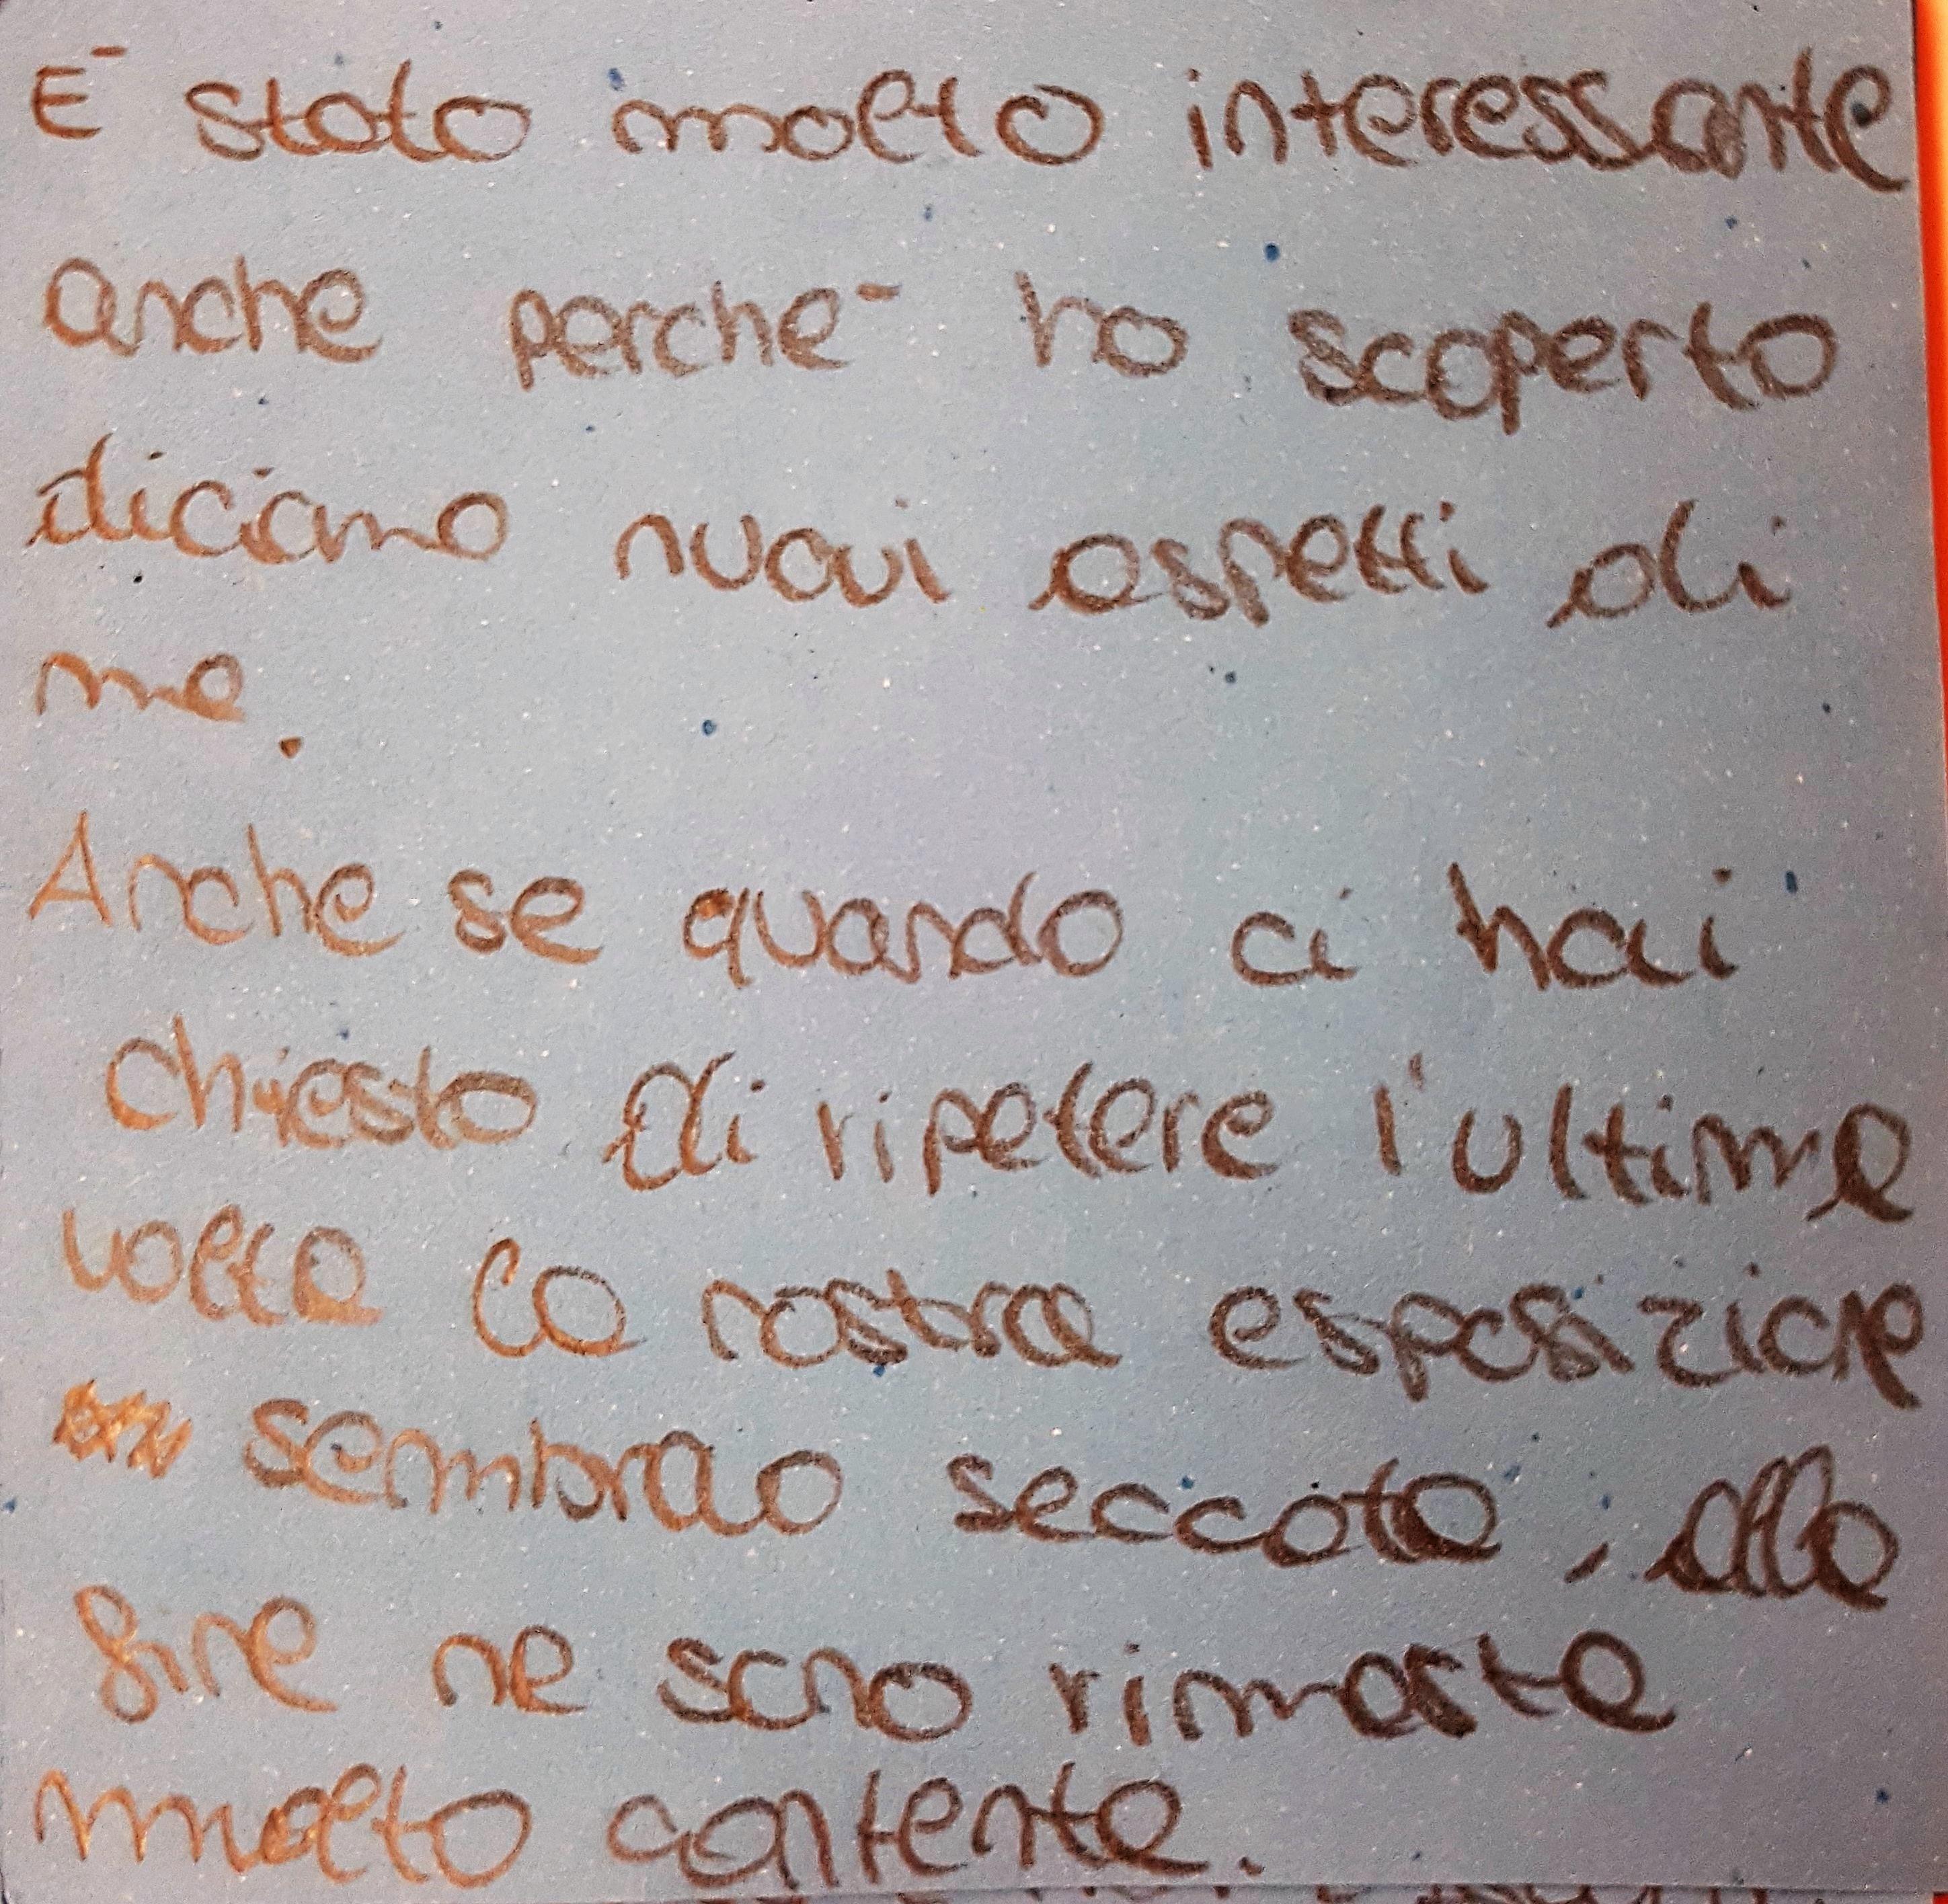 E' stato molto interessante
anche perche' ho scoperto
diciamo nuovi aspetti di
me.
Anche se quando ci hai
chiesto di ripetere l'ultima
volta la nostra esposizione
sembrao seccata, alla
fine ne sono rimasta
molto contenta.